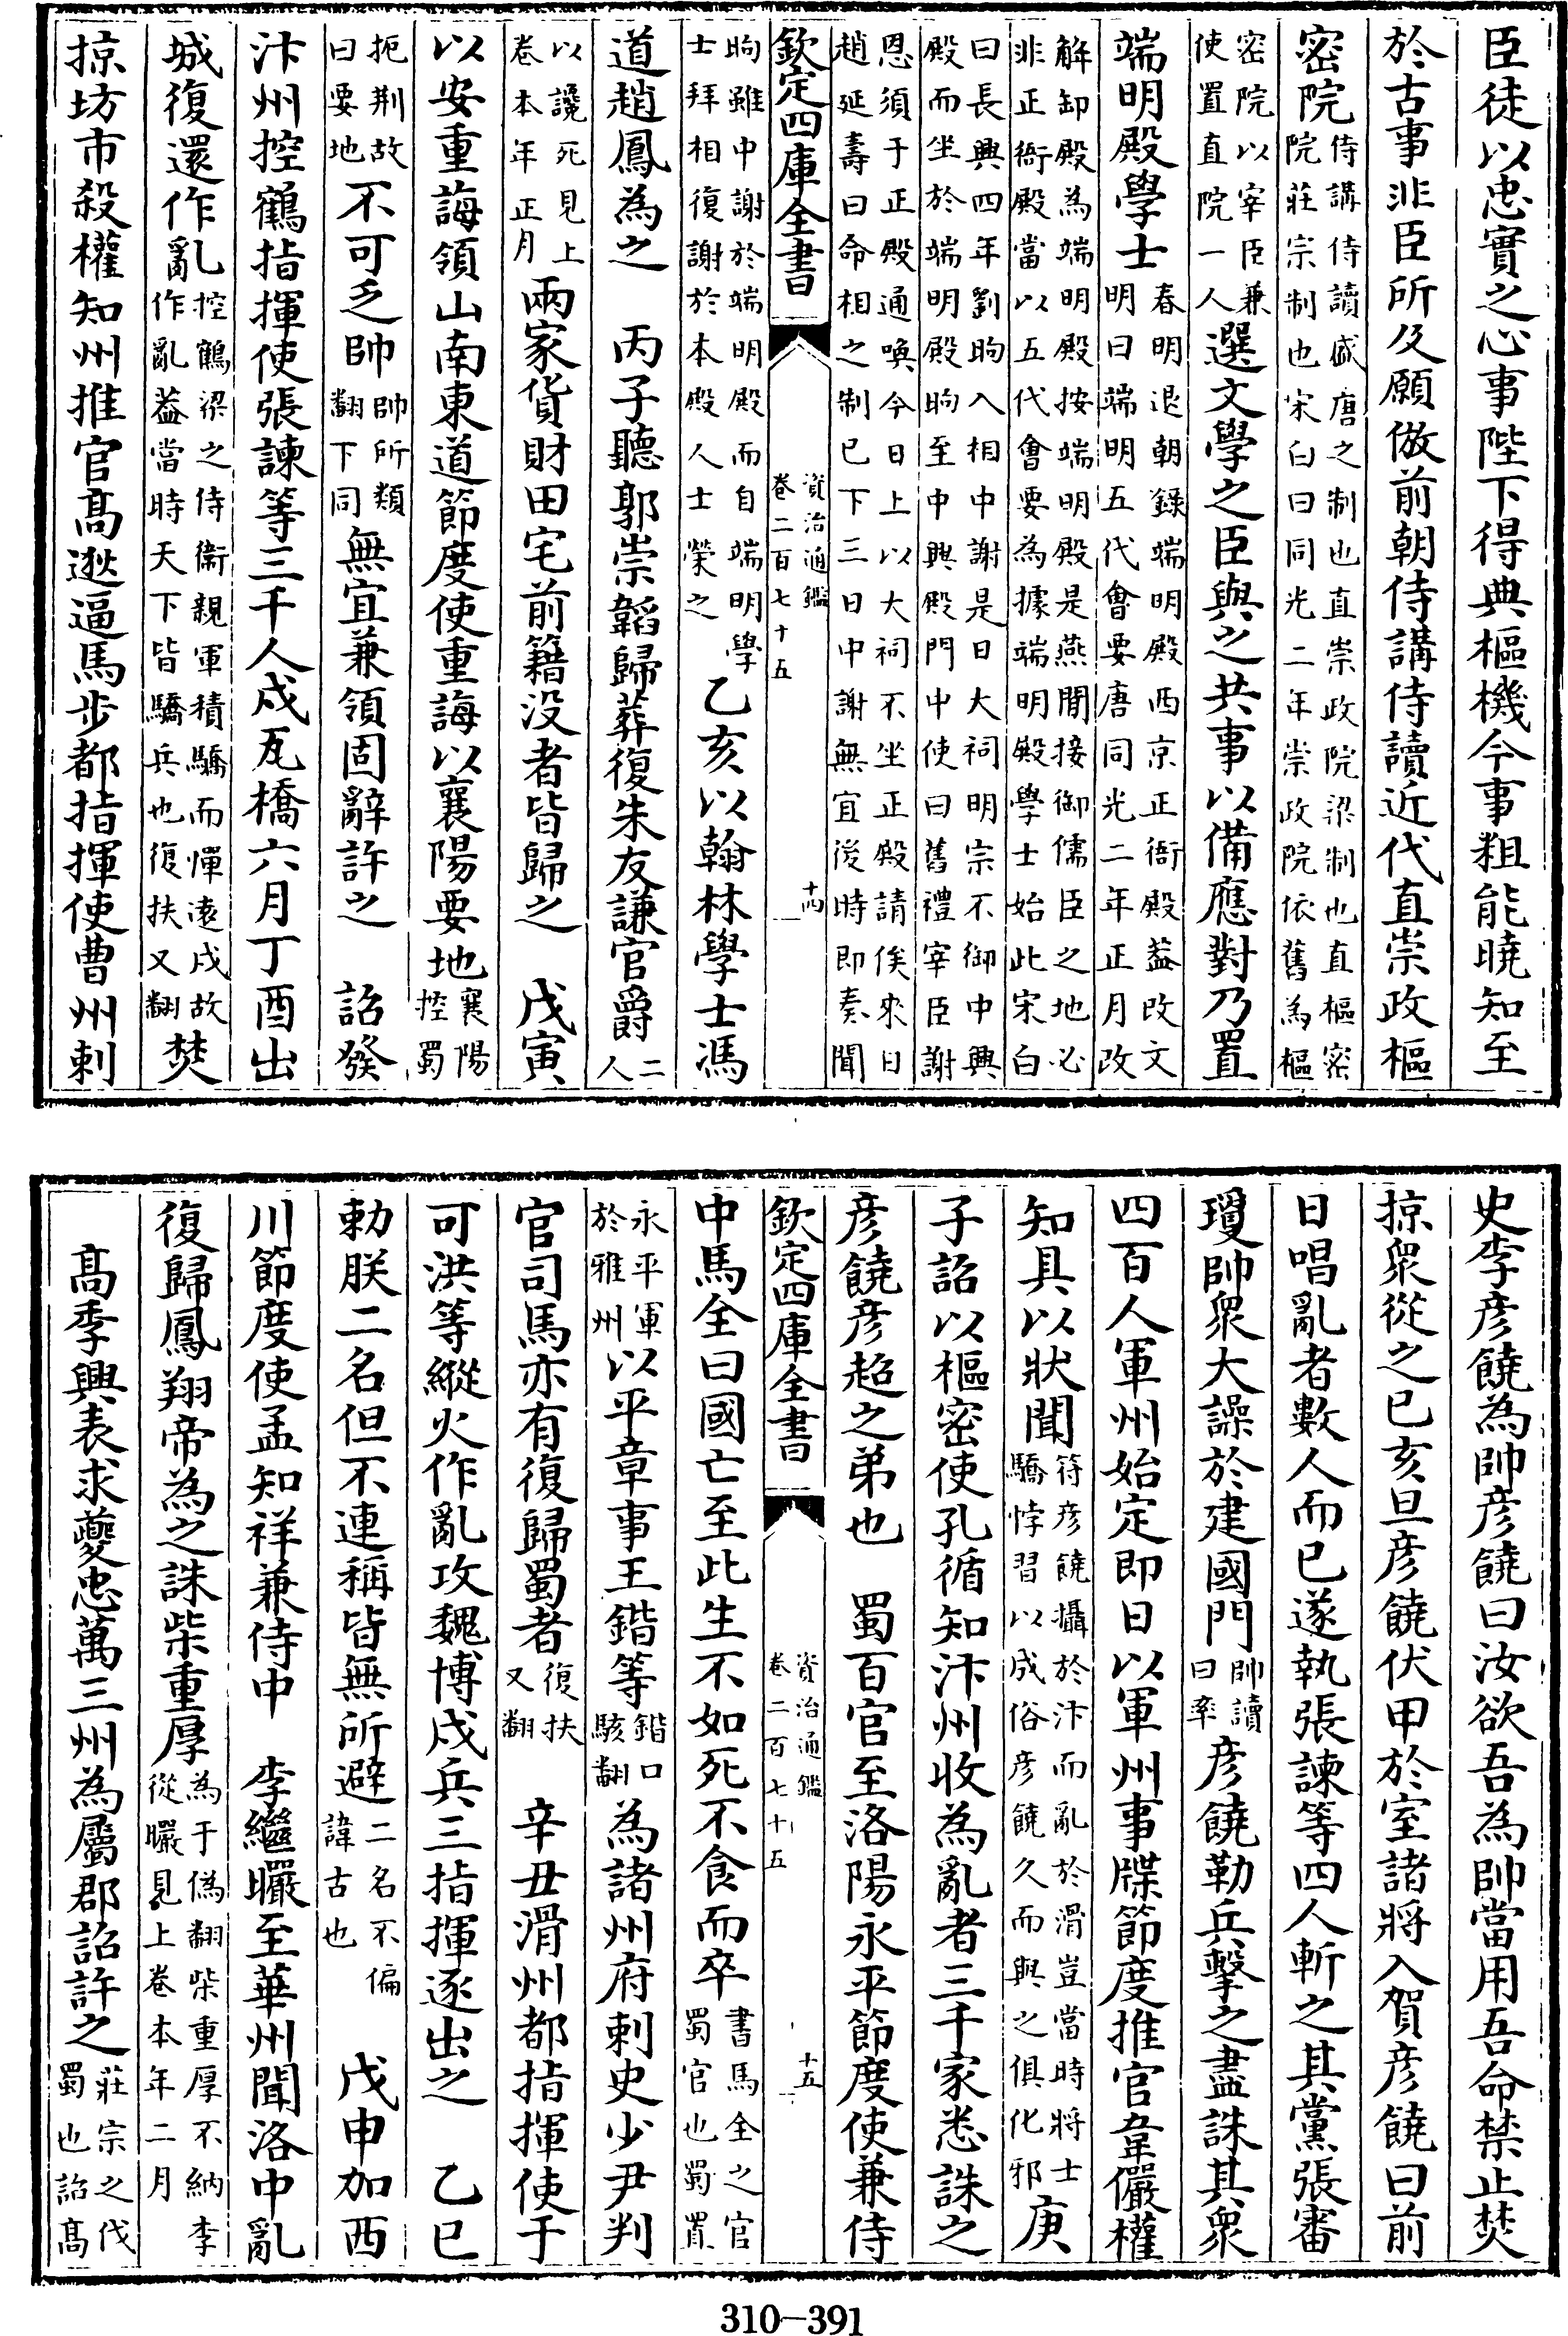 臣徒以忠實之心事陛下得典樞機今事粗能曉知至
於古事非臣所及願倣前朝侍講侍讀近代直崇政樞
密院侍講侍讀盛唐之制也直崇政院梁制也直樞密院莊宗制也宋白曰同光二年崇政院依舊為樞
密院以宰臣兼使置直院一人選文學之臣與之共事以備應對乃置
端明殿學士春明退朝錄端明殿西京正衙殿葢改文明曰端明五代會要唐同光二年正月改
解卸殿為端明殿按端明殿是燕閒接御儒臣之地必非正衙殿當以五代會要為據端明殿學士始此宋白
曰長興四年劉昫入相中謝是日大祠明宗不御中興殿而坐於端明殿昫至中興殿門中使曰舊禮宰臣謝
恩須于正殿通喚今日上以大祠不坐正殿請俟來日趙延壽曰命相之制已下三日中謝無宜後時即奏聞
欽定四庫全書 資治通鑑卷二百七十五 十四
昫雖中謝於端明殿而自端明學士拜相復謝於本殿人士榮之乙亥以翰林學士馮
道趙鳳為之 丙子聽郭崇韜歸葬復朱友謙官爵二人
以讒死見上卷本年正月兩家貨財田宅前籍没者皆歸之 戊寅
以安重誨領山南東道節度使重誨以襄陽要地襄陽控蜀
扼荆故曰要地不可乏帥帥所類翻下同無宜兼領固辭許之 詔發
汴州控鶴指揮使張諫等三千人戍瓦橋六月丁酉出
城復還作亂控鶴梁之侍衞親軍積驕而憚遠戍故作亂葢當時天下皆驕兵也復扶又翻焚
掠坊市殺權知州推官高逖逼馬步都指揮使曹州刺
史李彦饒為帥彦饒曰汝欲吾為帥當用吾命禁止焚
掠衆從之已亥旦彦饒伏甲於室諸將入賀彦饒曰前
日唱亂者數人而已遂執張諫等四人斬之其黨張審
瓊帥衆大譟於建國門帥讀曰率彦饒勒兵擊之盡誅其衆
四百人軍州始定即日以軍州事牒節度推官韋儼權
知具以狀聞符彦饒攝於汴而亂於滑豈當時將士驕悖習以成俗彦饒久而與之俱化邪庚
子詔以樞密使孔循知汴州收為亂者三千家悉誅之
彦饒彦超之弟也 蜀百官至洛陽永平節度使兼侍
欽定四庫全書 資治通鑑卷二百七十五 十五
中馬全曰國亡至此生不如死不食而卒書馬全之官蜀官也蜀置
永平軍於雅州以平章事王鍇等鍇口駭翻為諸州府刺史少尹判
官司馬亦有復歸蜀者復扶又翻 辛丑滑州都指揮使于
可洪等縱火作亂攻魏博戍兵三指揮逐出之 乙巳
勅朕二名但不連稱皆無所避二名不偏諱古也 戊申加西
川節度使孟知祥兼侍中 李繼曮至華州聞洛中亂
復歸鳳翔帝為之誅柴重厚為于偽翻柴重厚不納李從曮見上卷本年二月
高季興表求夔忠萬三州為屬郡詔許之莊宗之伐蜀也詔高
310-391